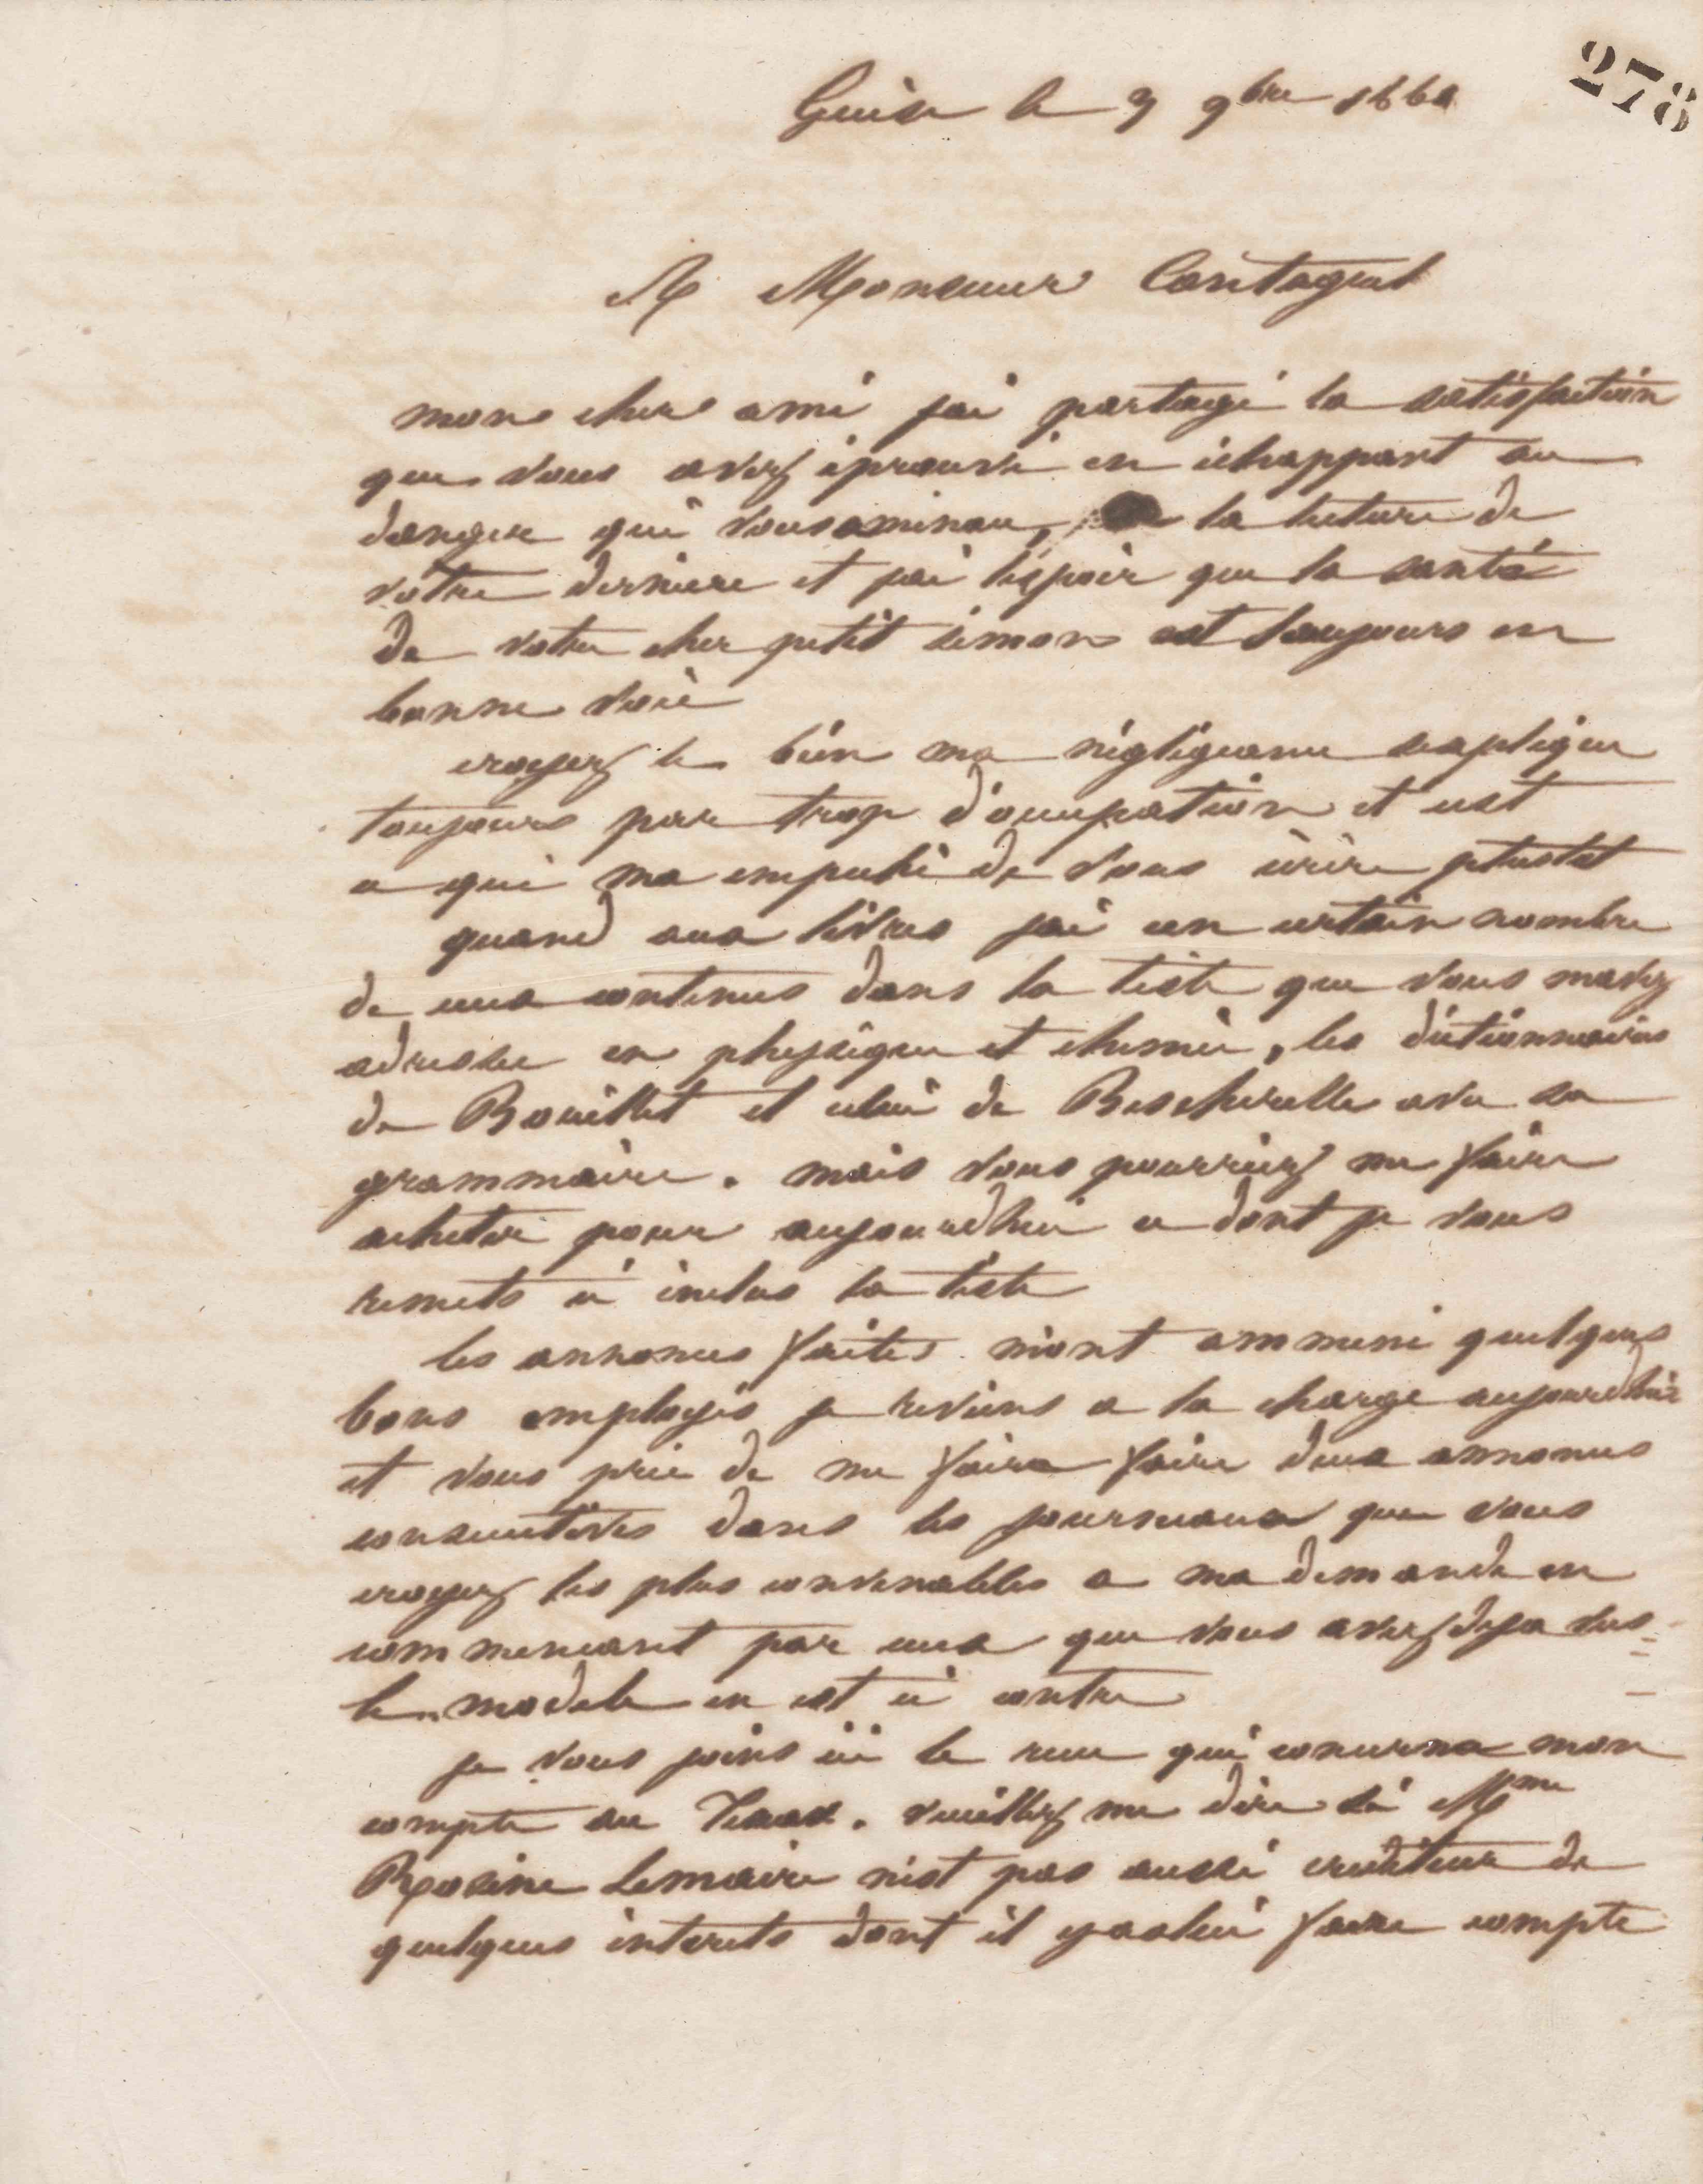 278
Guise le 9 9bre 1860
A Monsieur Cantagrel
mon cher ami jai partagé la satisfaction
que vous avez éprouvé en échappant au
danger qui vous la lecture de
votre derniere et jai l'espoir que la santé
de votre cher petit simon est toujours en
bonne voie
croyez le bien ma négligeance sexplique
toujours par trop d'occupation et cest
ce qui ma empeché de vous écrire plustot
quand aux livres jai un certain nombre
de ceux contenus dans la liste que vous mavez
adressée en physique et chimie, les dictionnaires
de Bouillet et celui de Bescherelle avec sa
grammaire. mais vous pourriez me faire
acheter pour aujourdhui ce dont je vous
remets ci inclus la liste
les annonces faites m'ont ammené quelques
bons employés je reviens a la charge aujourdhui
et vous prie de me faire faire deux annonces
consecutives dans les journeaux que vous
croyez les plus convenables a ma demande en
commencant par ceux que vous avez deja vus
le modele en est ci contre
je vous joins ici le recu qui concerne mon
compte au Texas. veuillez me dire si Mme
Rosine Lemaire n'est pas aussi crediteur de
quelques interets dont il y a a lui faire compte